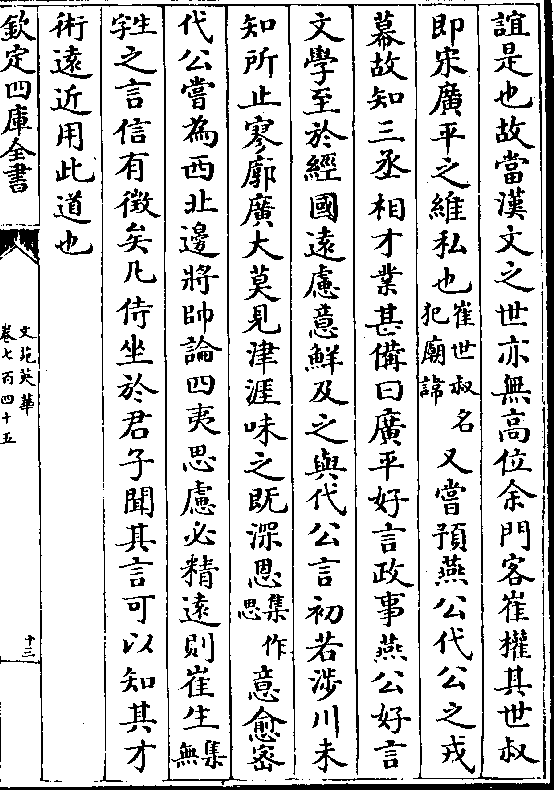 誼是也故當漢文之世亦無高位余門客崔㩲其世叔
即宋廣平之維私也崔世叔名犯廟諱又嘗預燕公代公之戎
幕故知三丞相才業甚備曰廣平好言政事燕公好言
文學至於經國遠慮意鮮及之與代公言初若涉川未
知所止寥廓廣大莫見津涯味之既深思集作思意愈密
代公嘗為西北邊將帥論四夷思慮必精遠則崔生集無
生字之言信有徵矣凡侍坐於君子聞其言可以知其才
術遠近用此道也
欽定四庫全書
文苑英華
卷七百四十五
十三